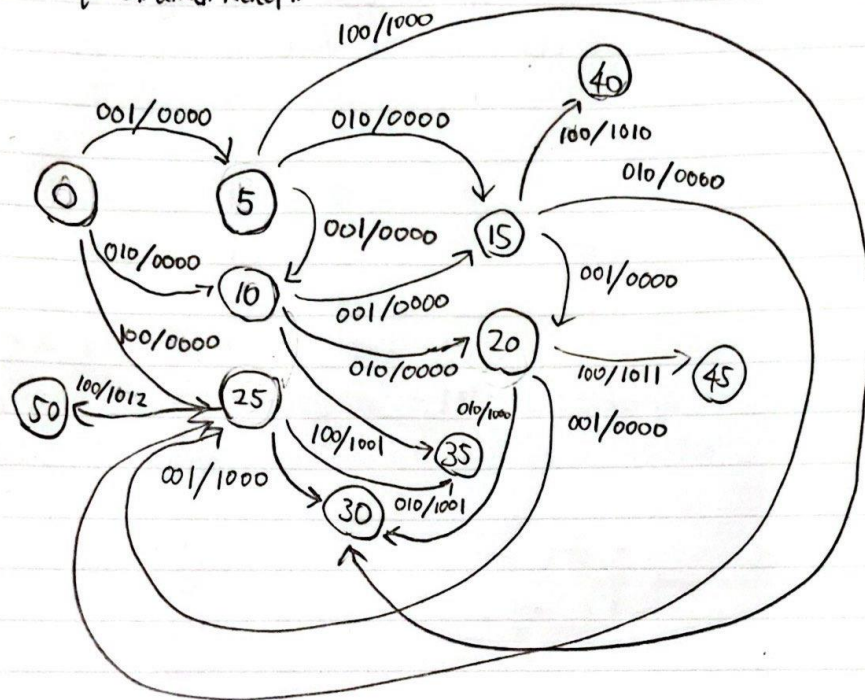 100/1000
40
001/0000
010/0000
100/1010
010/0000
0
5
15
001/0000
010/0000
10
001/0000
001/0000
20
100/0000
010/0000
100/1011
45
100/1012
50
25
010/1000
001/0000
100/1001
35
001/1000
010/1001
30